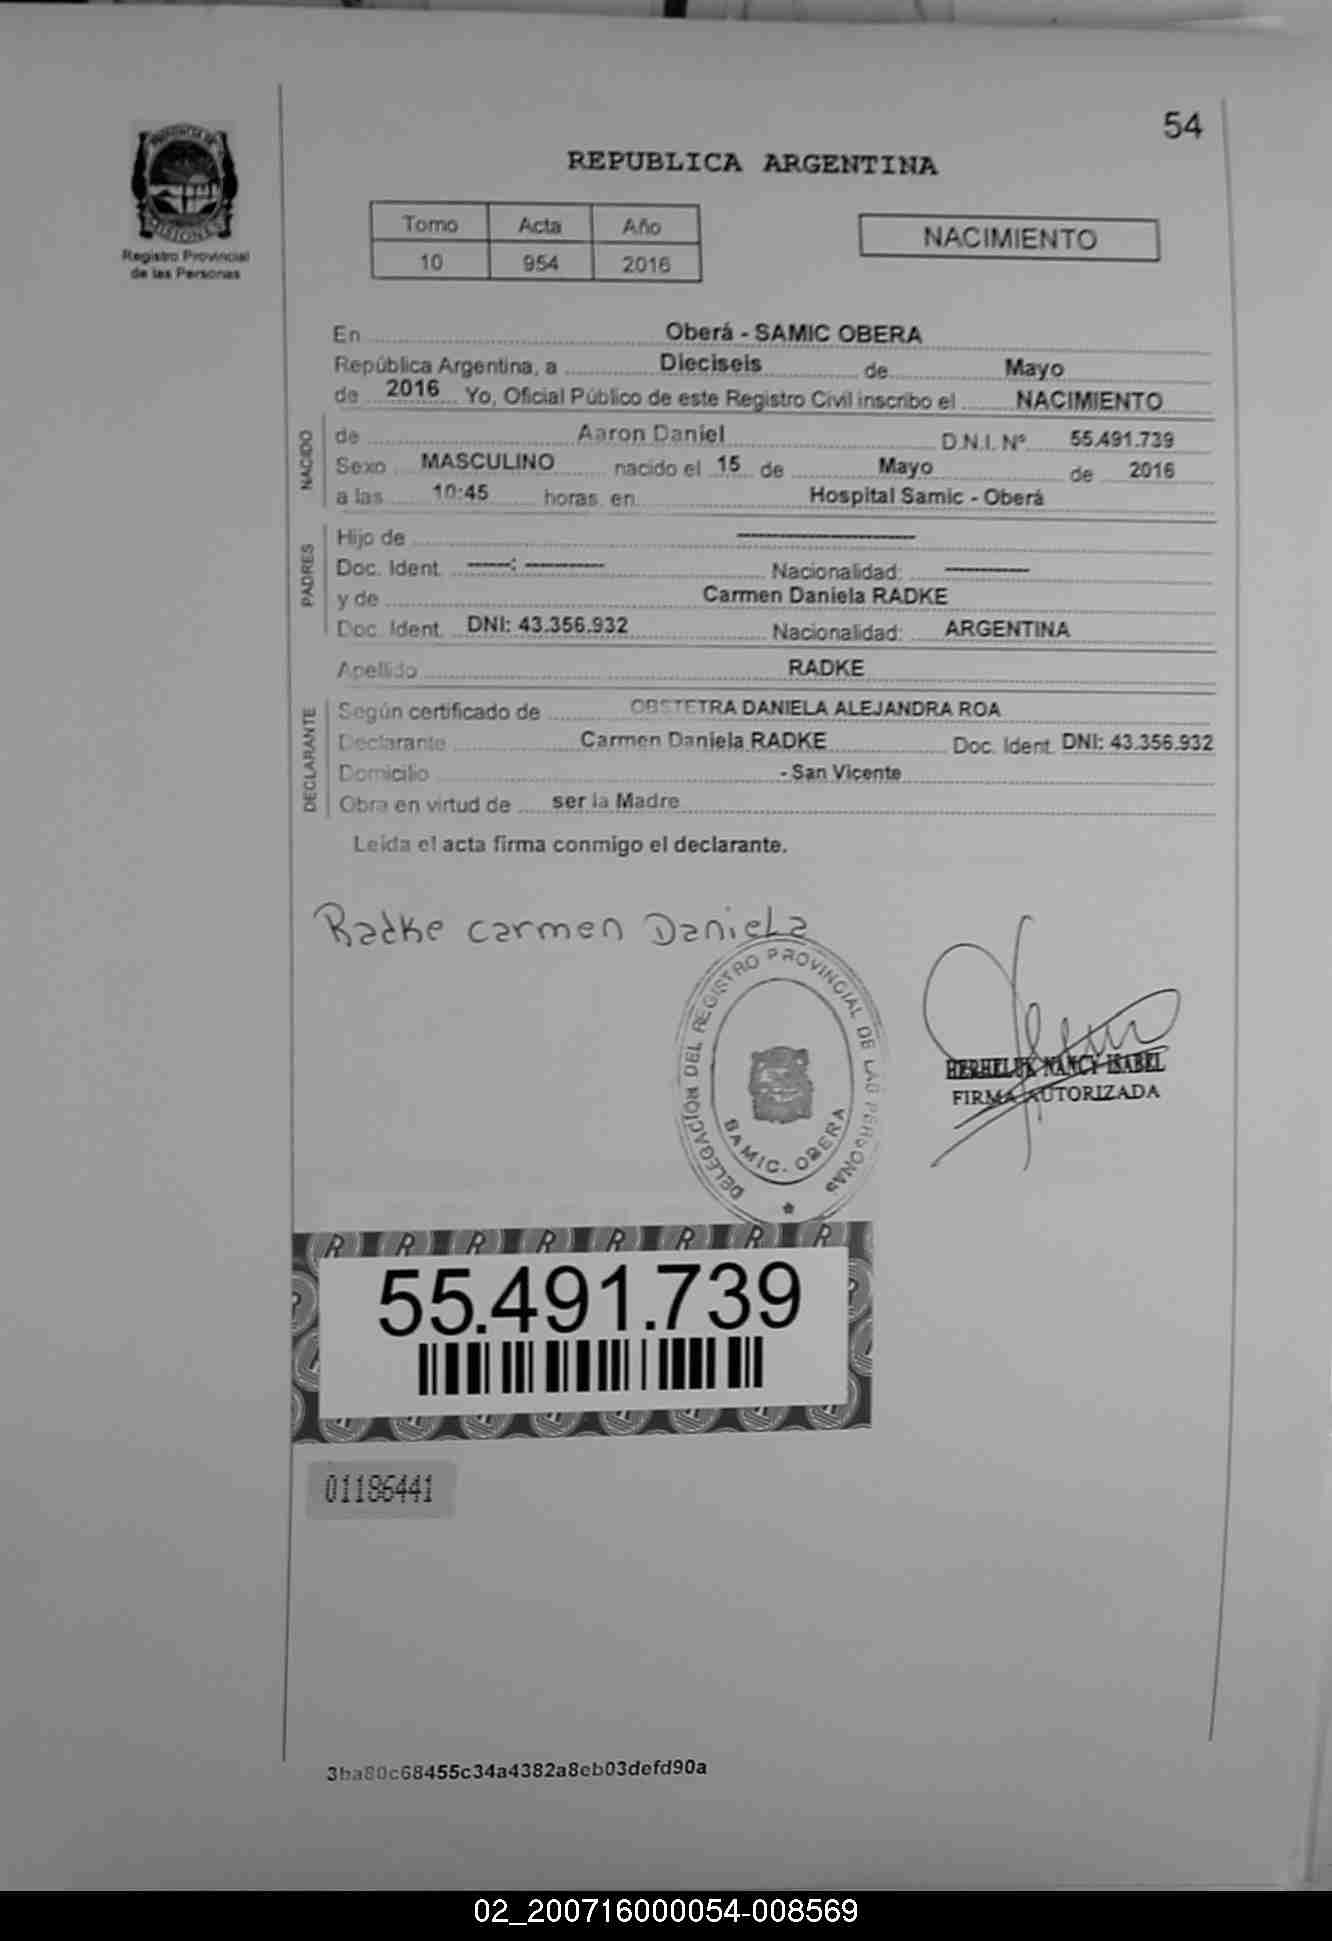 54
PROVINCIA DE
MISIONES
Registro Provincial
de las Personas
REPUBLICA ARGENTINA
Tomo Acta Año
10 954 2016
NACIMIENTO
En Oberá - SAMIC OBERA
República Argentina, a Dieciseis de Mayo
de 2016 Yo, Oficial Público de este Registro Civil inscribo el NACIMIENTO
NACIDO
de Aaron Daniel D.N.I. Nº 55.491.739
Sexo MASCULINO nacido el 15 de Mayo de 2016
a las 10:45 horas, en Hospital Samic - Oberá
PADRES
Hijo de --------------------
Doc. Ident. -----: --------- Nacionalidad: ----------
y de Carmen Daniela RADKE
Doc. Ident. DNI: 43.356.932 Nacionalidad: ARGENTINA
Apellido RADKE
DECLARANTE
Según certificado de OBSTETRA DANIELA ALEJANDRA ROA
Declarante Carmen Daniela RADKE Doc. Ident. DNI: 43.356.932
Domicilio - San Vicente
Obra en virtud de ser la Madre
Leída el acta firma conmigo el declarante.
Radke carmen Daniela
DELEGACIÓN DEL REGISTRO PROVINCIAL DE LAS PERSONAS
SAMIC. OBERA
HERHELUK NANCY ISABEL
FIRMA AUTORIZADA
R R R R R R R R
55.491.739
01186441
3ba80c68455c34a4382a8eb03defd90a
02_200716000054-008569